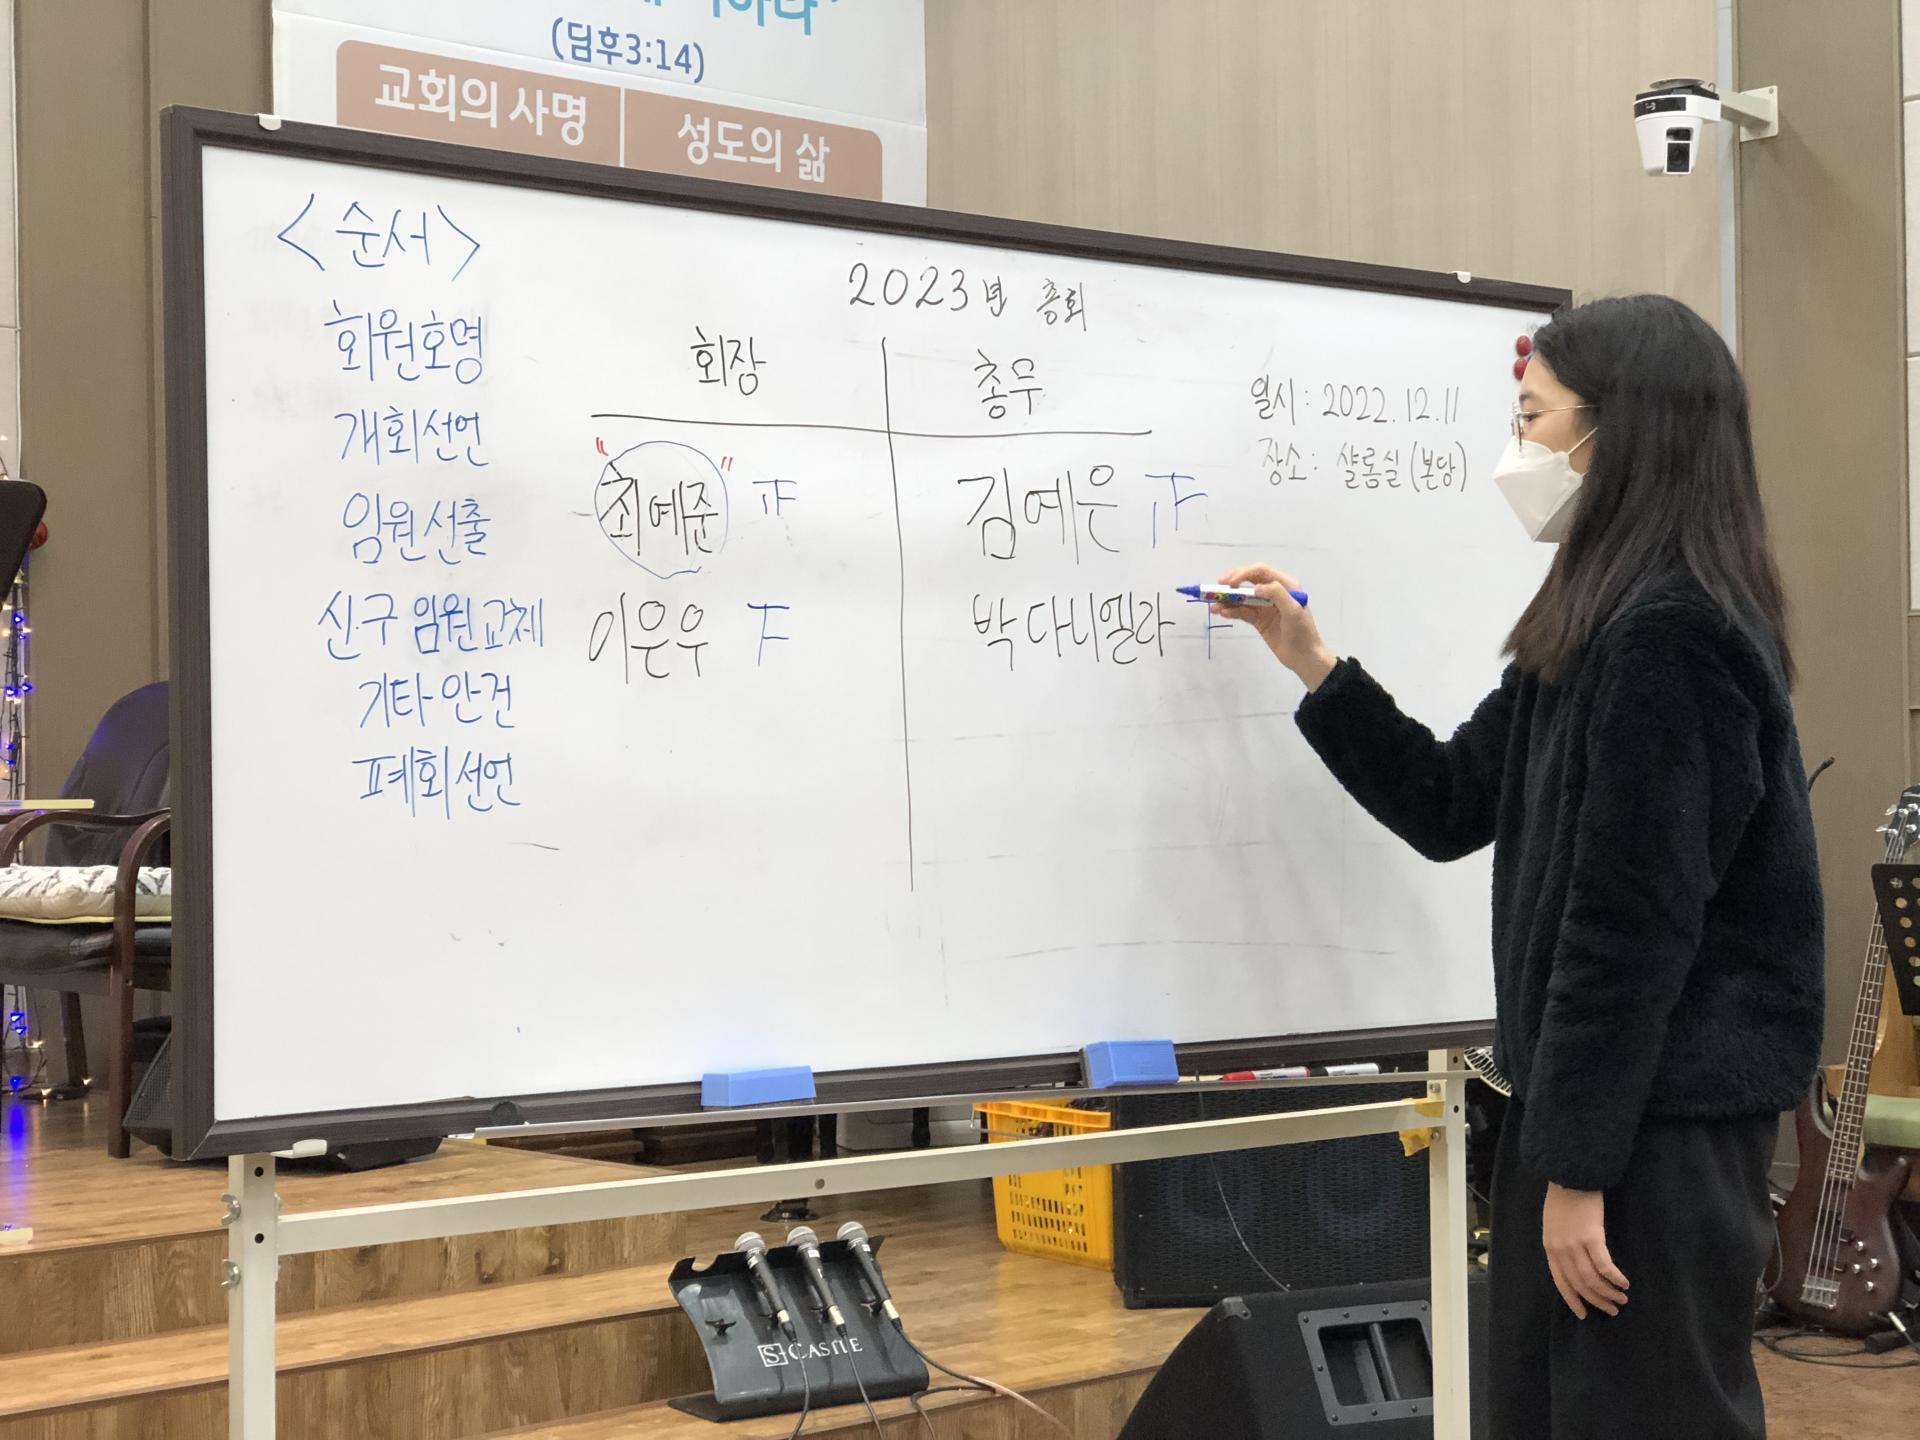 (딤후3:14)
교회의 사명
성도의 삶
<순서>
회원호명
개회선언
임원선출
신구 임원교체
기타안건
폐회선언
2023년 총회
회장
총무
"최예준"
이은우
김예은
박다니엘라
일시: 2022.12.11
장소: 샬롬실(본당)
S-CASTLE